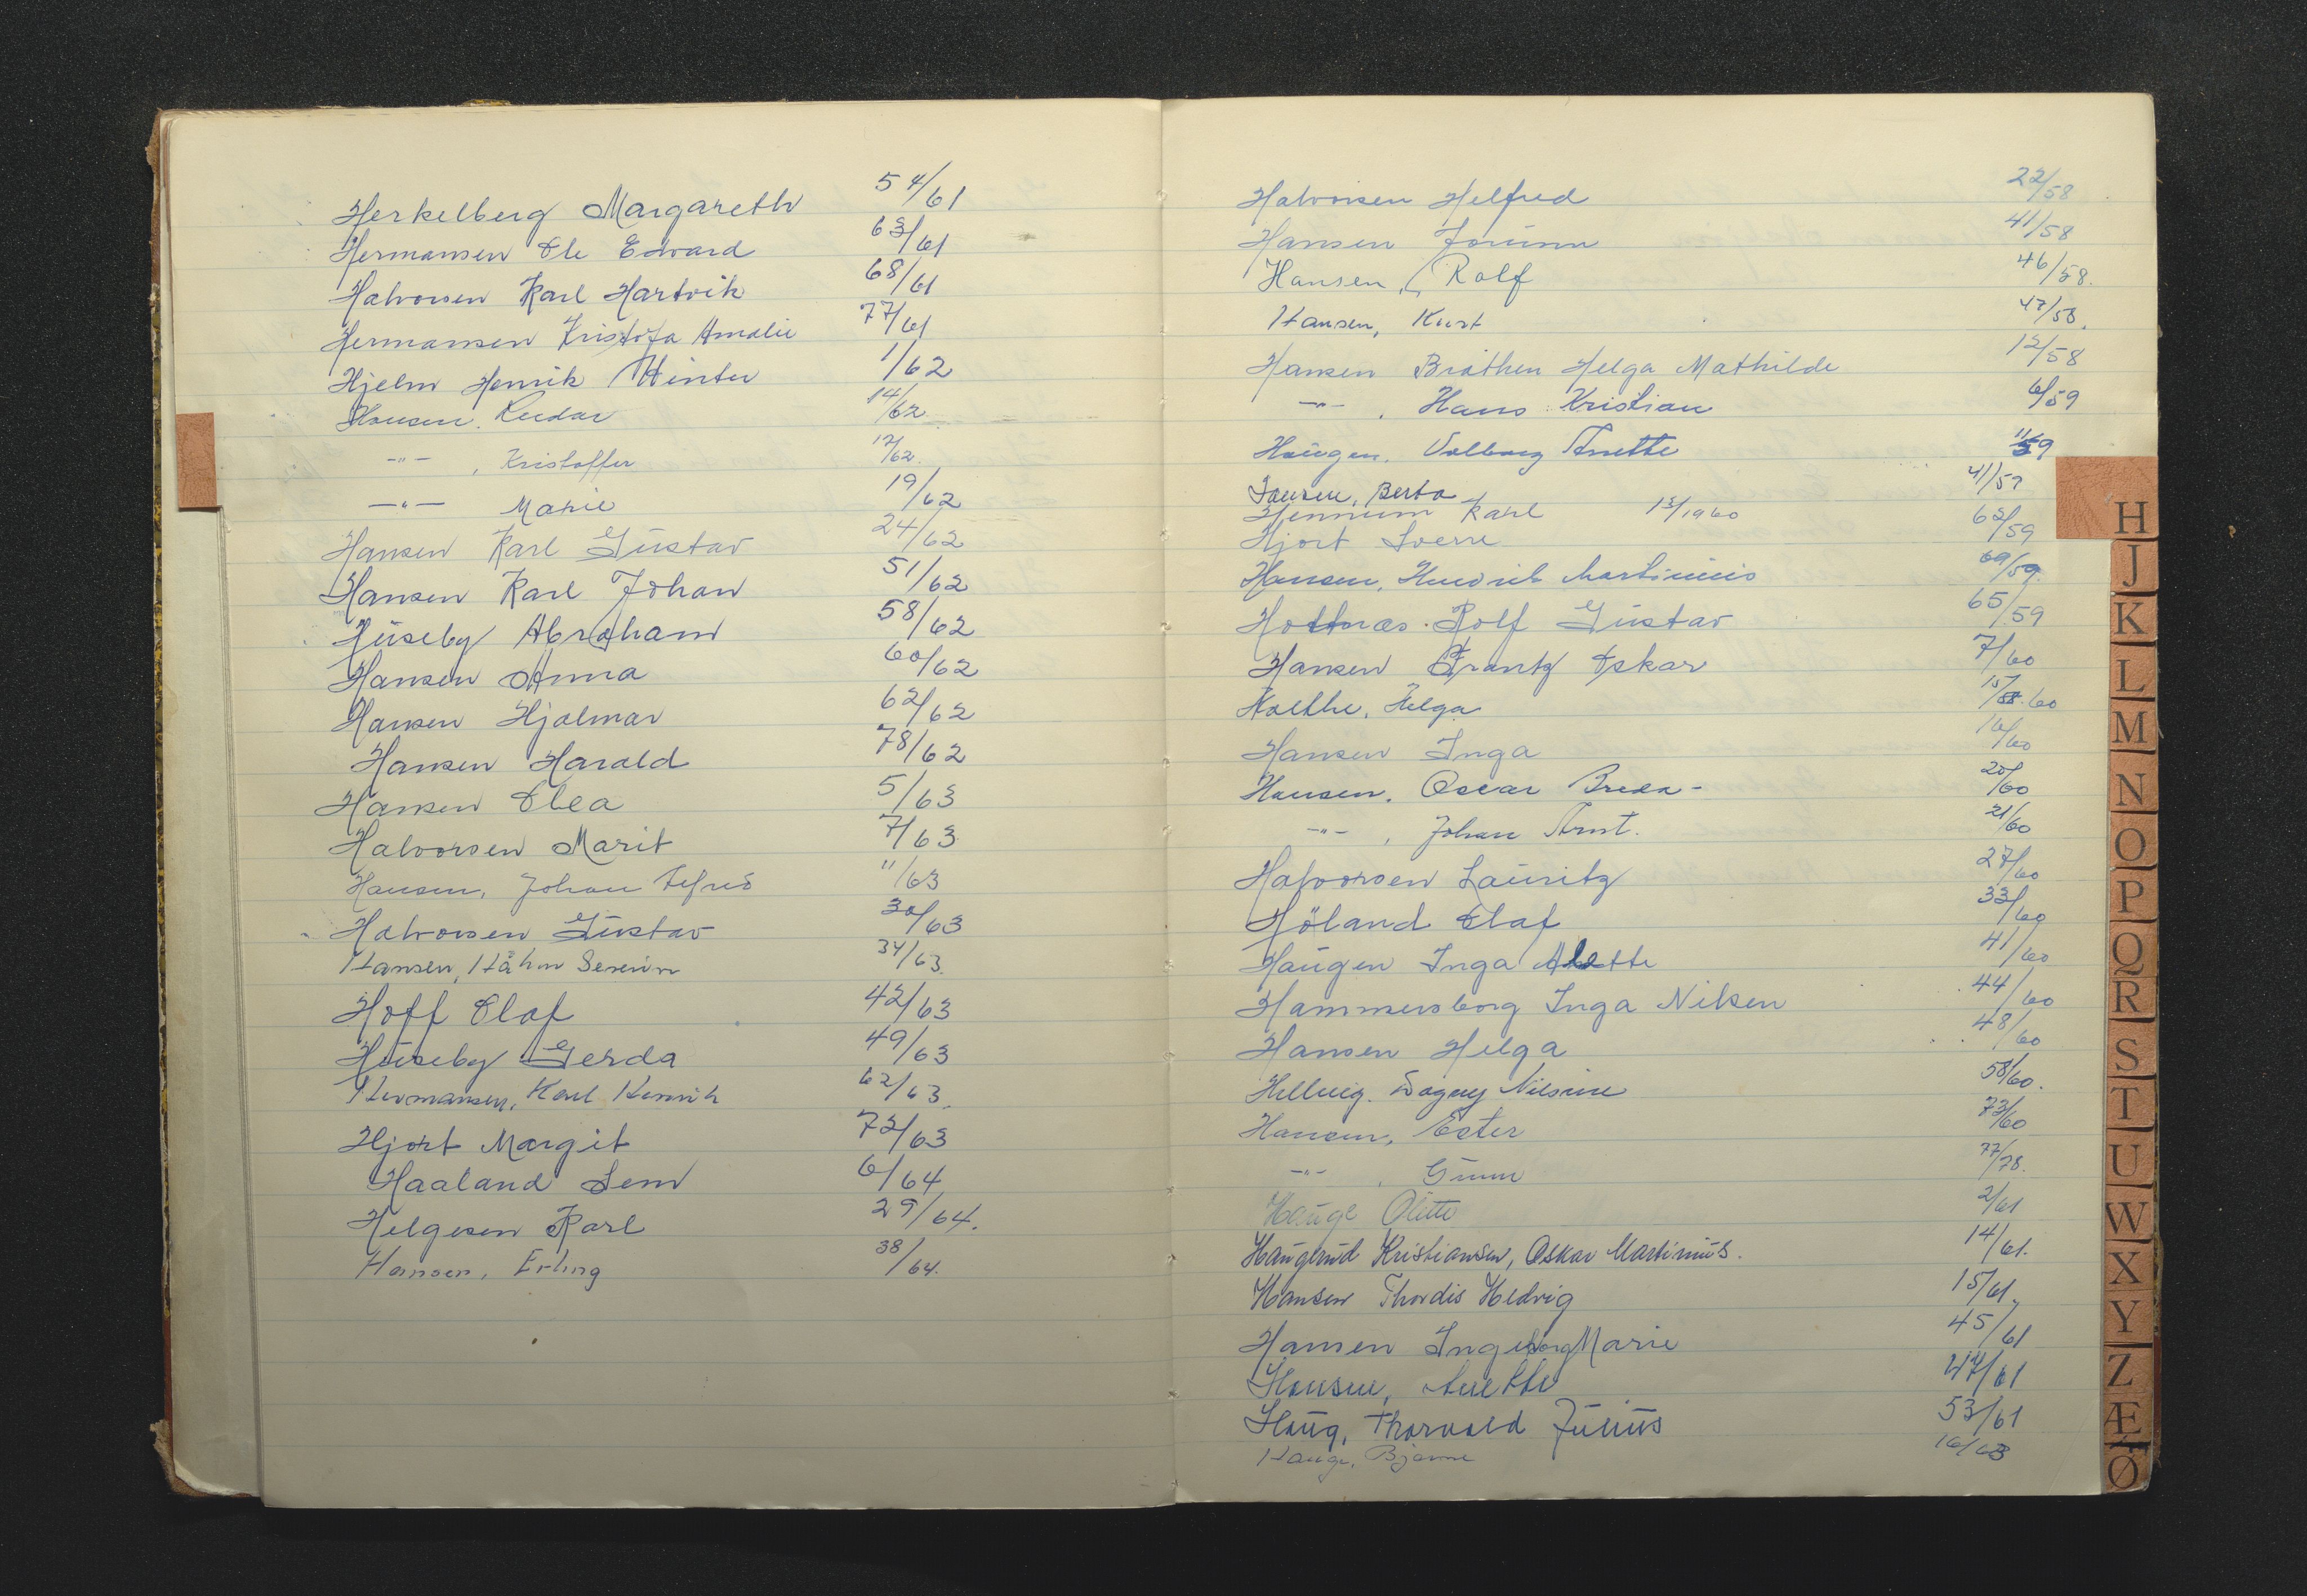 Herkelberg Margareth 54/61
Hermansen Ole Edvard 63/61
Halvorsen Karl Hartvik 68/61
Hermansen Kristofa Amalie 77/61
Hjelm Henrik Winter 1/62
Hansen. Reidar 14/62
-"- , Kristoffer 17/62.
-"- Marie 19/62
Hansen Karl Gustav 24/62
Hansen Karl Johan 51/62
Huseby Abraham 58/62
Hansen Anna 60/62
Hansen Hjalmar 62/62
Hansen Harald 78/62
Hansen Olea 5/63
Halvorsen Marit 7/63
Hansen, Johan 11/63
Halvorsen Gustav 30/63
Hansen, Håkon Severin 34/63.
Hoff Olaf 42/63
Huseby Gerda 49/63
Hermansen, Karl Henrik 62/63.
Hjort Margit 72/63
Haaland Sem 6/64
Helgesen Karl 29/64.
Hansen, Erling 38/64.
Halvorsen Helfred 22/58
Hansen Jorunn 41/58
Hansen, Rolf 46/58.
Hansen, Kurt 47/58.
Hansen Bråthen Helga Mathilde 12/58
-"- , Hans Kristian 6/59
Haugen, Valborg Anette 11/59
Jansen, Berta 41/59
Hennum Karl 13/1960
Hjort Sverre 62/59
Hansen, Hendrik Martinius 69/59.
Hottnæs Rolf Gustav 65/59
Hansen Frantz Oskar 7/60
Holthe, Helga 15/60
Hansen Inga 16/60
Hansen, Oscar Breda- 20/60
-"- , Johan Arnt. 21/60
Halvorsen Lauritz 27/60
Höland Olaf 33/60
Haugen Inga Alette 41/60
Hammersborg Inga Nilsen 44/60
Hansen Helga 48/60
Hellvig. Dagny Nilsine 58/60.
Hansen, Ester 73/60
-"- , Gunn 77/78.
Hauge Olette 2/61
Haugerud Kristiansen, Oskar Martinius. 14/61.
Hansen Thordis Hedvig 15/61,
Hansen Ingeborg Marie 45/61
Hansen, Anette 47/61
Haug, Thorvald Julius 53/61
Hauge, Bjarne 16/63
H
J
K
L
M
N
O
P
Q
R
S
T
U
W
X
Y
Z
Æ
Ø